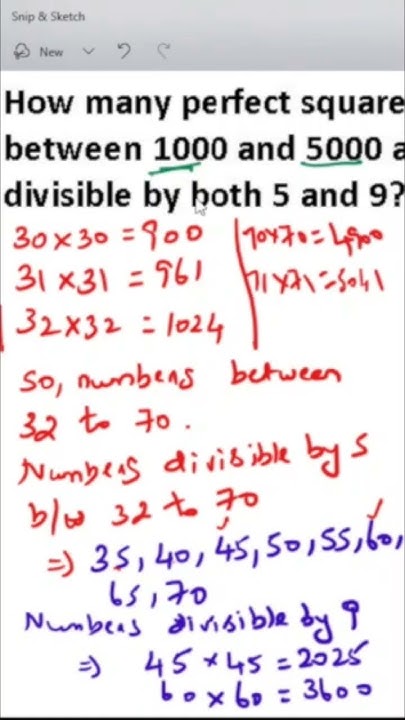 Snip & Sketch
New
How many perfect square
between 1000 and 5000 a
divisible by both 5 and 9?
30×30 = 900
31×31 = 961
32×32 = 1024
70×70=4900
71×71=5041
So, numbers between
32 to 70.
Numbers divisible by 5
b/w 32 to 70
=) 35, 40, 45, 50, 55, 60,
65, 70
Numbers divisible by 9
=) 45×45=2025
60×60=3600